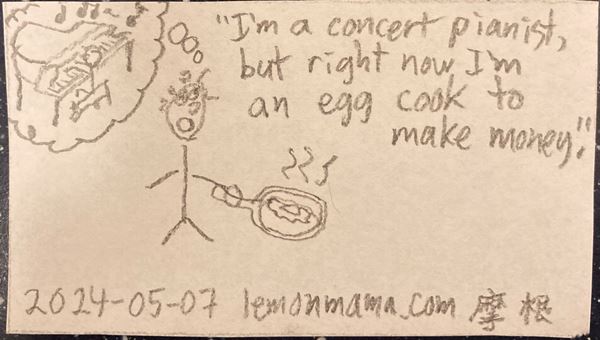 "I'm a concert pianist,
but right now I'm
an egg cook to
make money."
2024-05-07 lemonmama.com 摩根